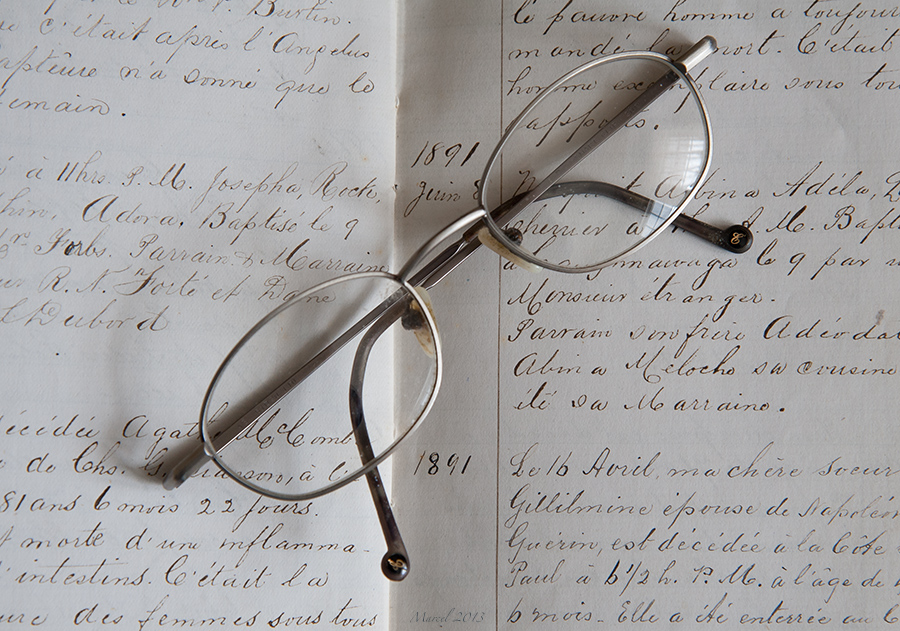 Burtin.
c'était après l'Angelus
n'a sonné que le
à 11 hrs. P. M. Josepha,
Adora, Baptisé le 9
Forbs. Parrain & Marraine
R. N. Forté et Dame
Dubord
Agathe McComb
de Chs.
81 ans 6 mois 22 jours.
morte d'une inflamma-
intestins. C'était la
des femmes sous tous
le pauvre homme a toujours
mandé la mort. C'était
homme exemplaire sous tou
rapports.
1891
Juin 8
Albina Adéla,
P. M. Bapt
le 9 par
Monsieur étranger.
Parrain son frère Adéoda
Abina Meloche sa cousine
été sa Marraine.
1891
Le 16 Avril, ma chère soeur
Gillilmine épouse de Napoléon
Guerin, est décédée à la Côte
Paul à 6 1/2 h. P. M. à l'âge de
6 mois. Elle a été enterrée au
Marcel 2013